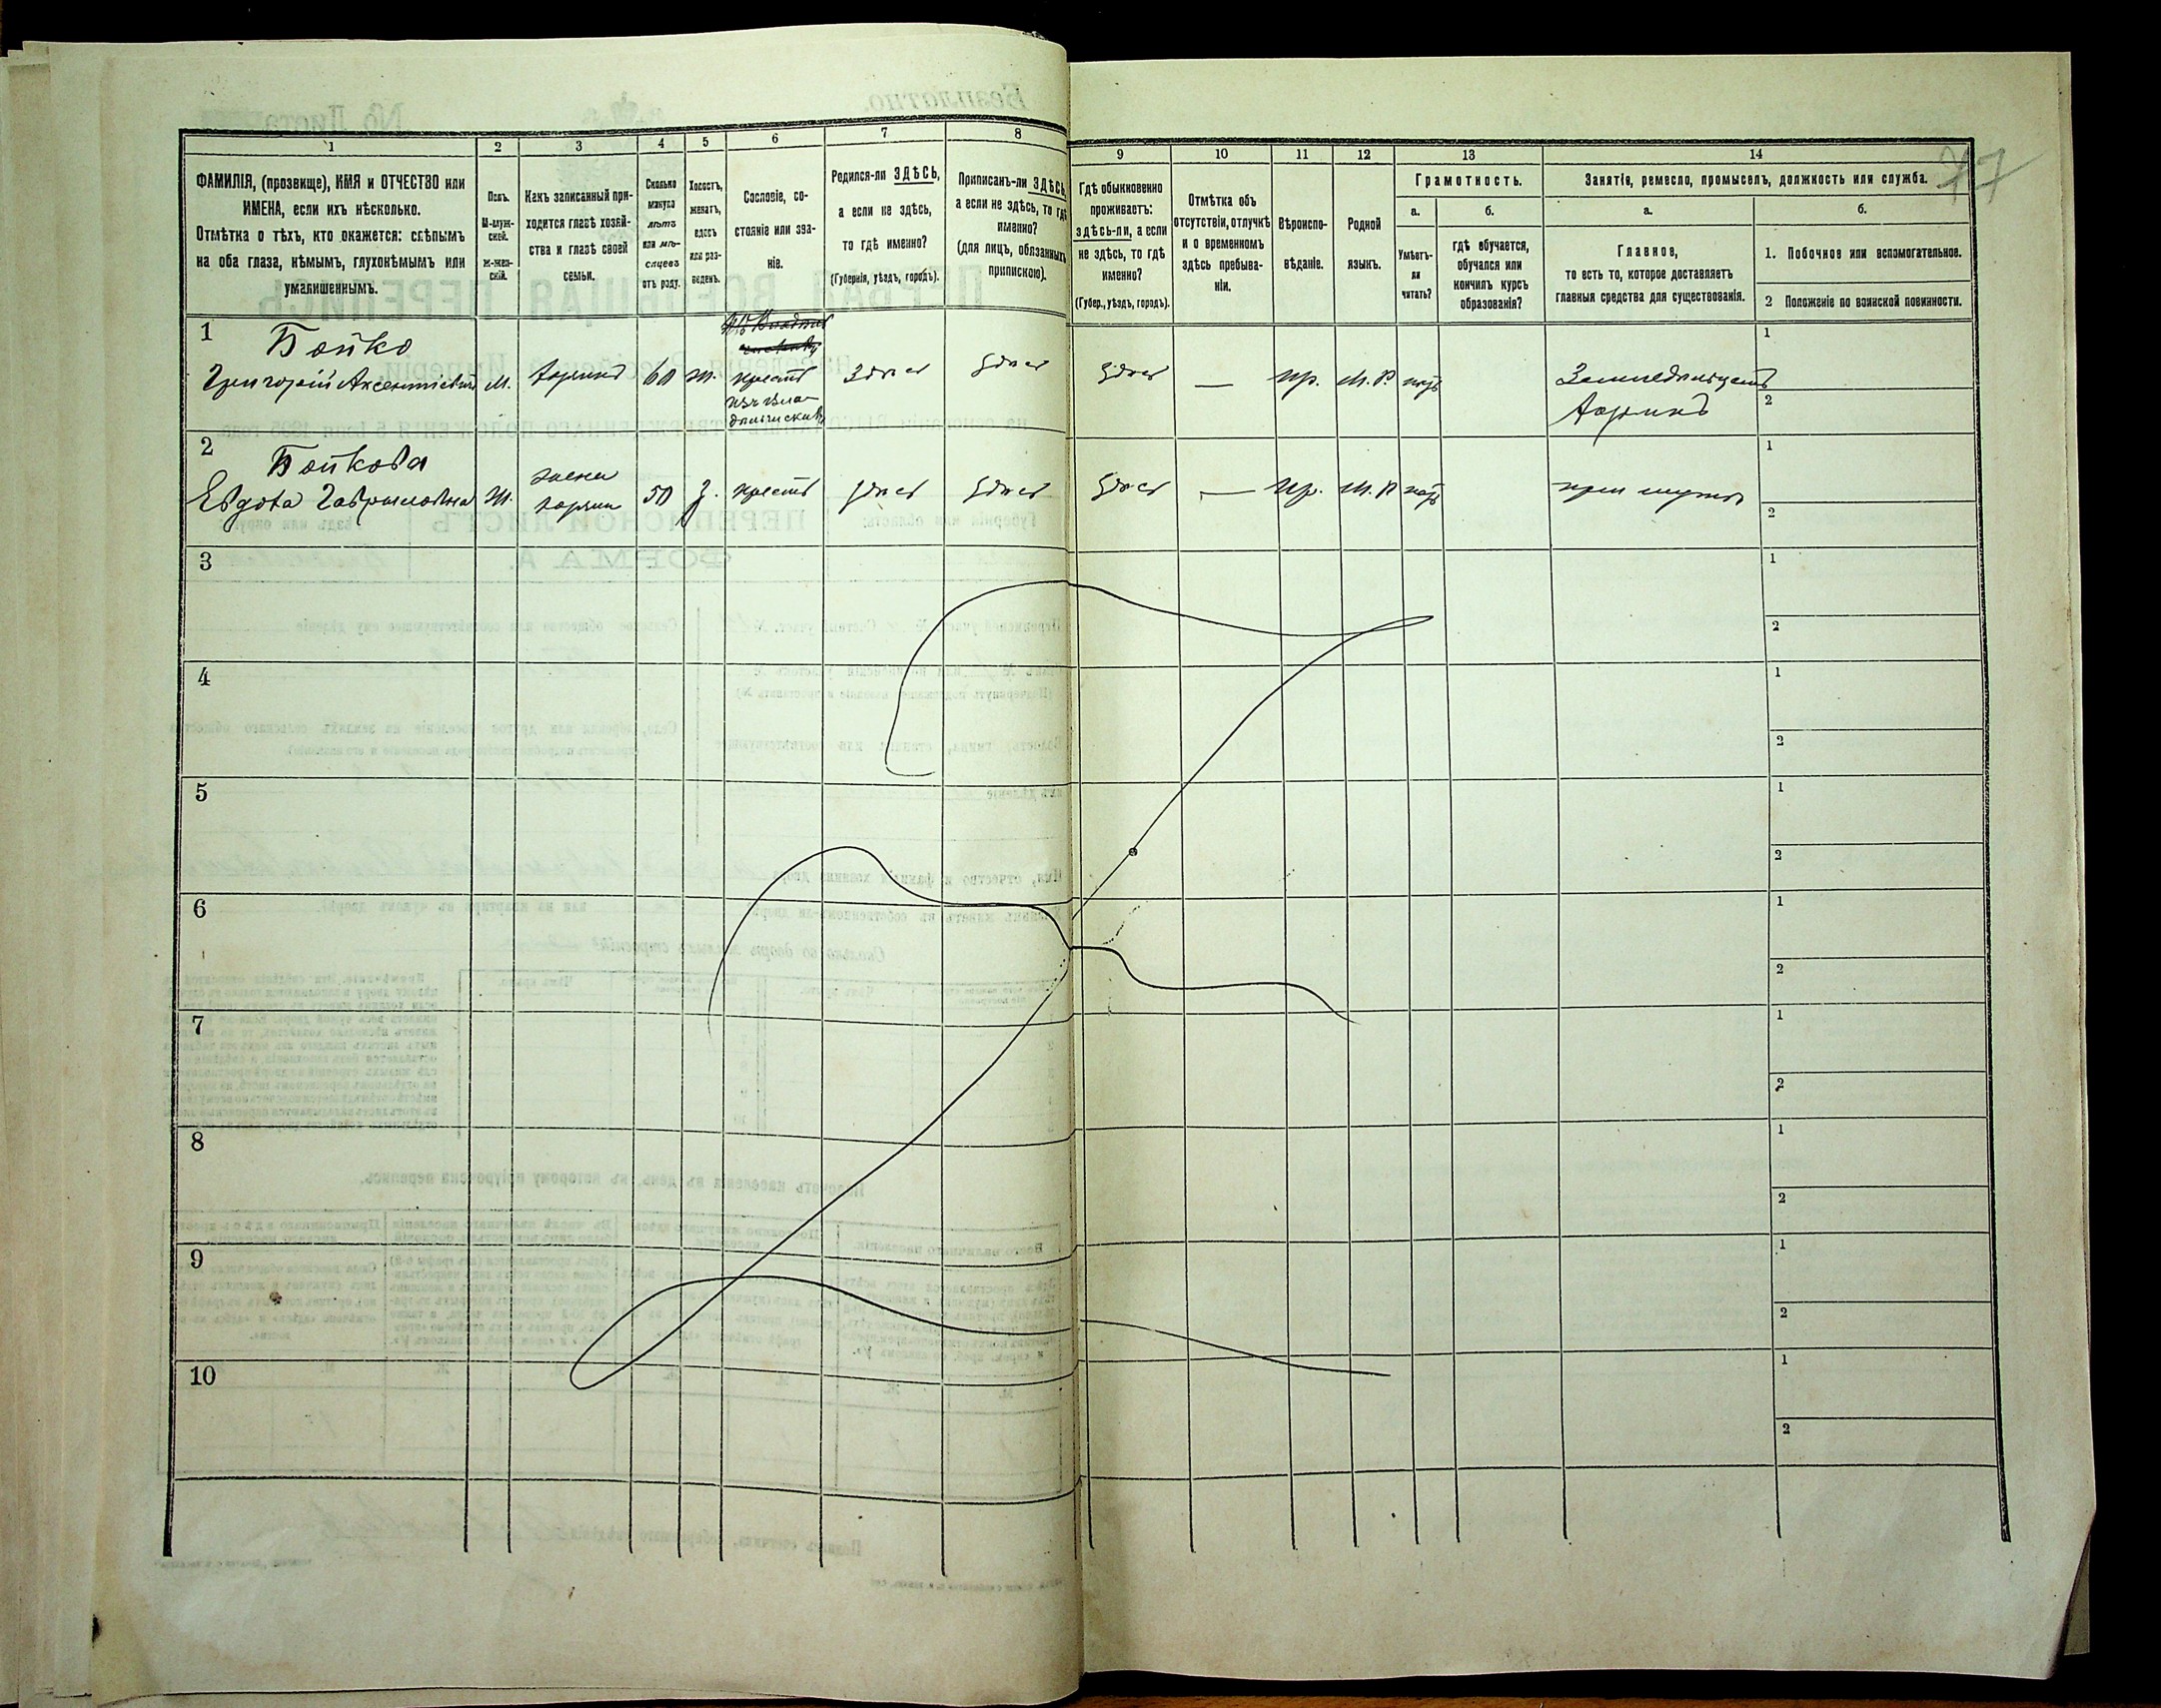 77
1
2
3
4
5
6
7
8
9
10
11
12
13
14
ФАМИЛІЯ, (прозвище), ИМЯ и ОТЧЕСТВО или
ИМЕНА, если ихъ нѣсколько.
Отмѣтка о тѣхъ, кто окажется: слѣпымъ
на оба глаза, нѣмымъ, глухонѣмымъ или
умалишеннымъ.
Полъ.
М-муж-
ской.
Ж-жен-
скій.
Какъ записанный при-
ходится главѣ хозяй-
ства и главѣ своей
семьи.
Сколько
минуло
лѣтъ
или мѣ-
сяцевъ
отъ роду.
Холостъ,
женатъ,
вдовъ
или раз-
веденъ.
Сословіе, со-
стояніе или зва-
ніе.
Родился-ли ЗДѢСЬ,
а если не здѣсь,
то гдѣ именно?
(Губернія, уѣздъ, городъ).
Приписанъ-ли ЗДѢСЬ,
а если не здѣсь, то гдѣ
именно?
(для лицъ, обязанныхъ
припискою).
Гдѣ обыкновенно
проживаетъ:
здѣсь-ли, а если
не здѣсь, то гдѣ
именно?
(Губер., уѣздъ, городъ).
Отмѣтка объ
отсутствіи, отлучкѣ
и о временномъ
здѣсь пребыва-
ніи.
Вѣроиспо-
вѣданіе.
Родной
языкъ.
Грамотность.
а.
б.
Умѣетъ-
ли
читать?
гдѣ обучается,
обучался или
кончилъ курсъ
образованія?
Занятіе, ремесло, промыселъ, должность или служба.
а.
б.
Главное,
то есть то, которое доставляетъ
главныя средства для существованія.
1. Побочное или вспомогательное.
2 Положеніе по воинской повинности.
1
Бойко
Григорій Аксентіевичъ
м.
хозяинъ
60
ж.
крест
изъ вла-
дѣльческихъ
здѣсь
здѣсь
здѣсь
—
пр.
М. Р.
нѣтъ
Земледѣлецъ
хозяинъ
1
2
2
Бойкова
Евдока Гавриловна
ж.
жена
хозяин
50
з.
крест
здѣсь
здѣсь
здѣсь
—
пр.
М. Р
нѣтъ
при мужѣ
1
2
3
1
2
4
1
2
5
1
2
6
1
2
7
1
2
8
1
2
9
1
2
10
1
2